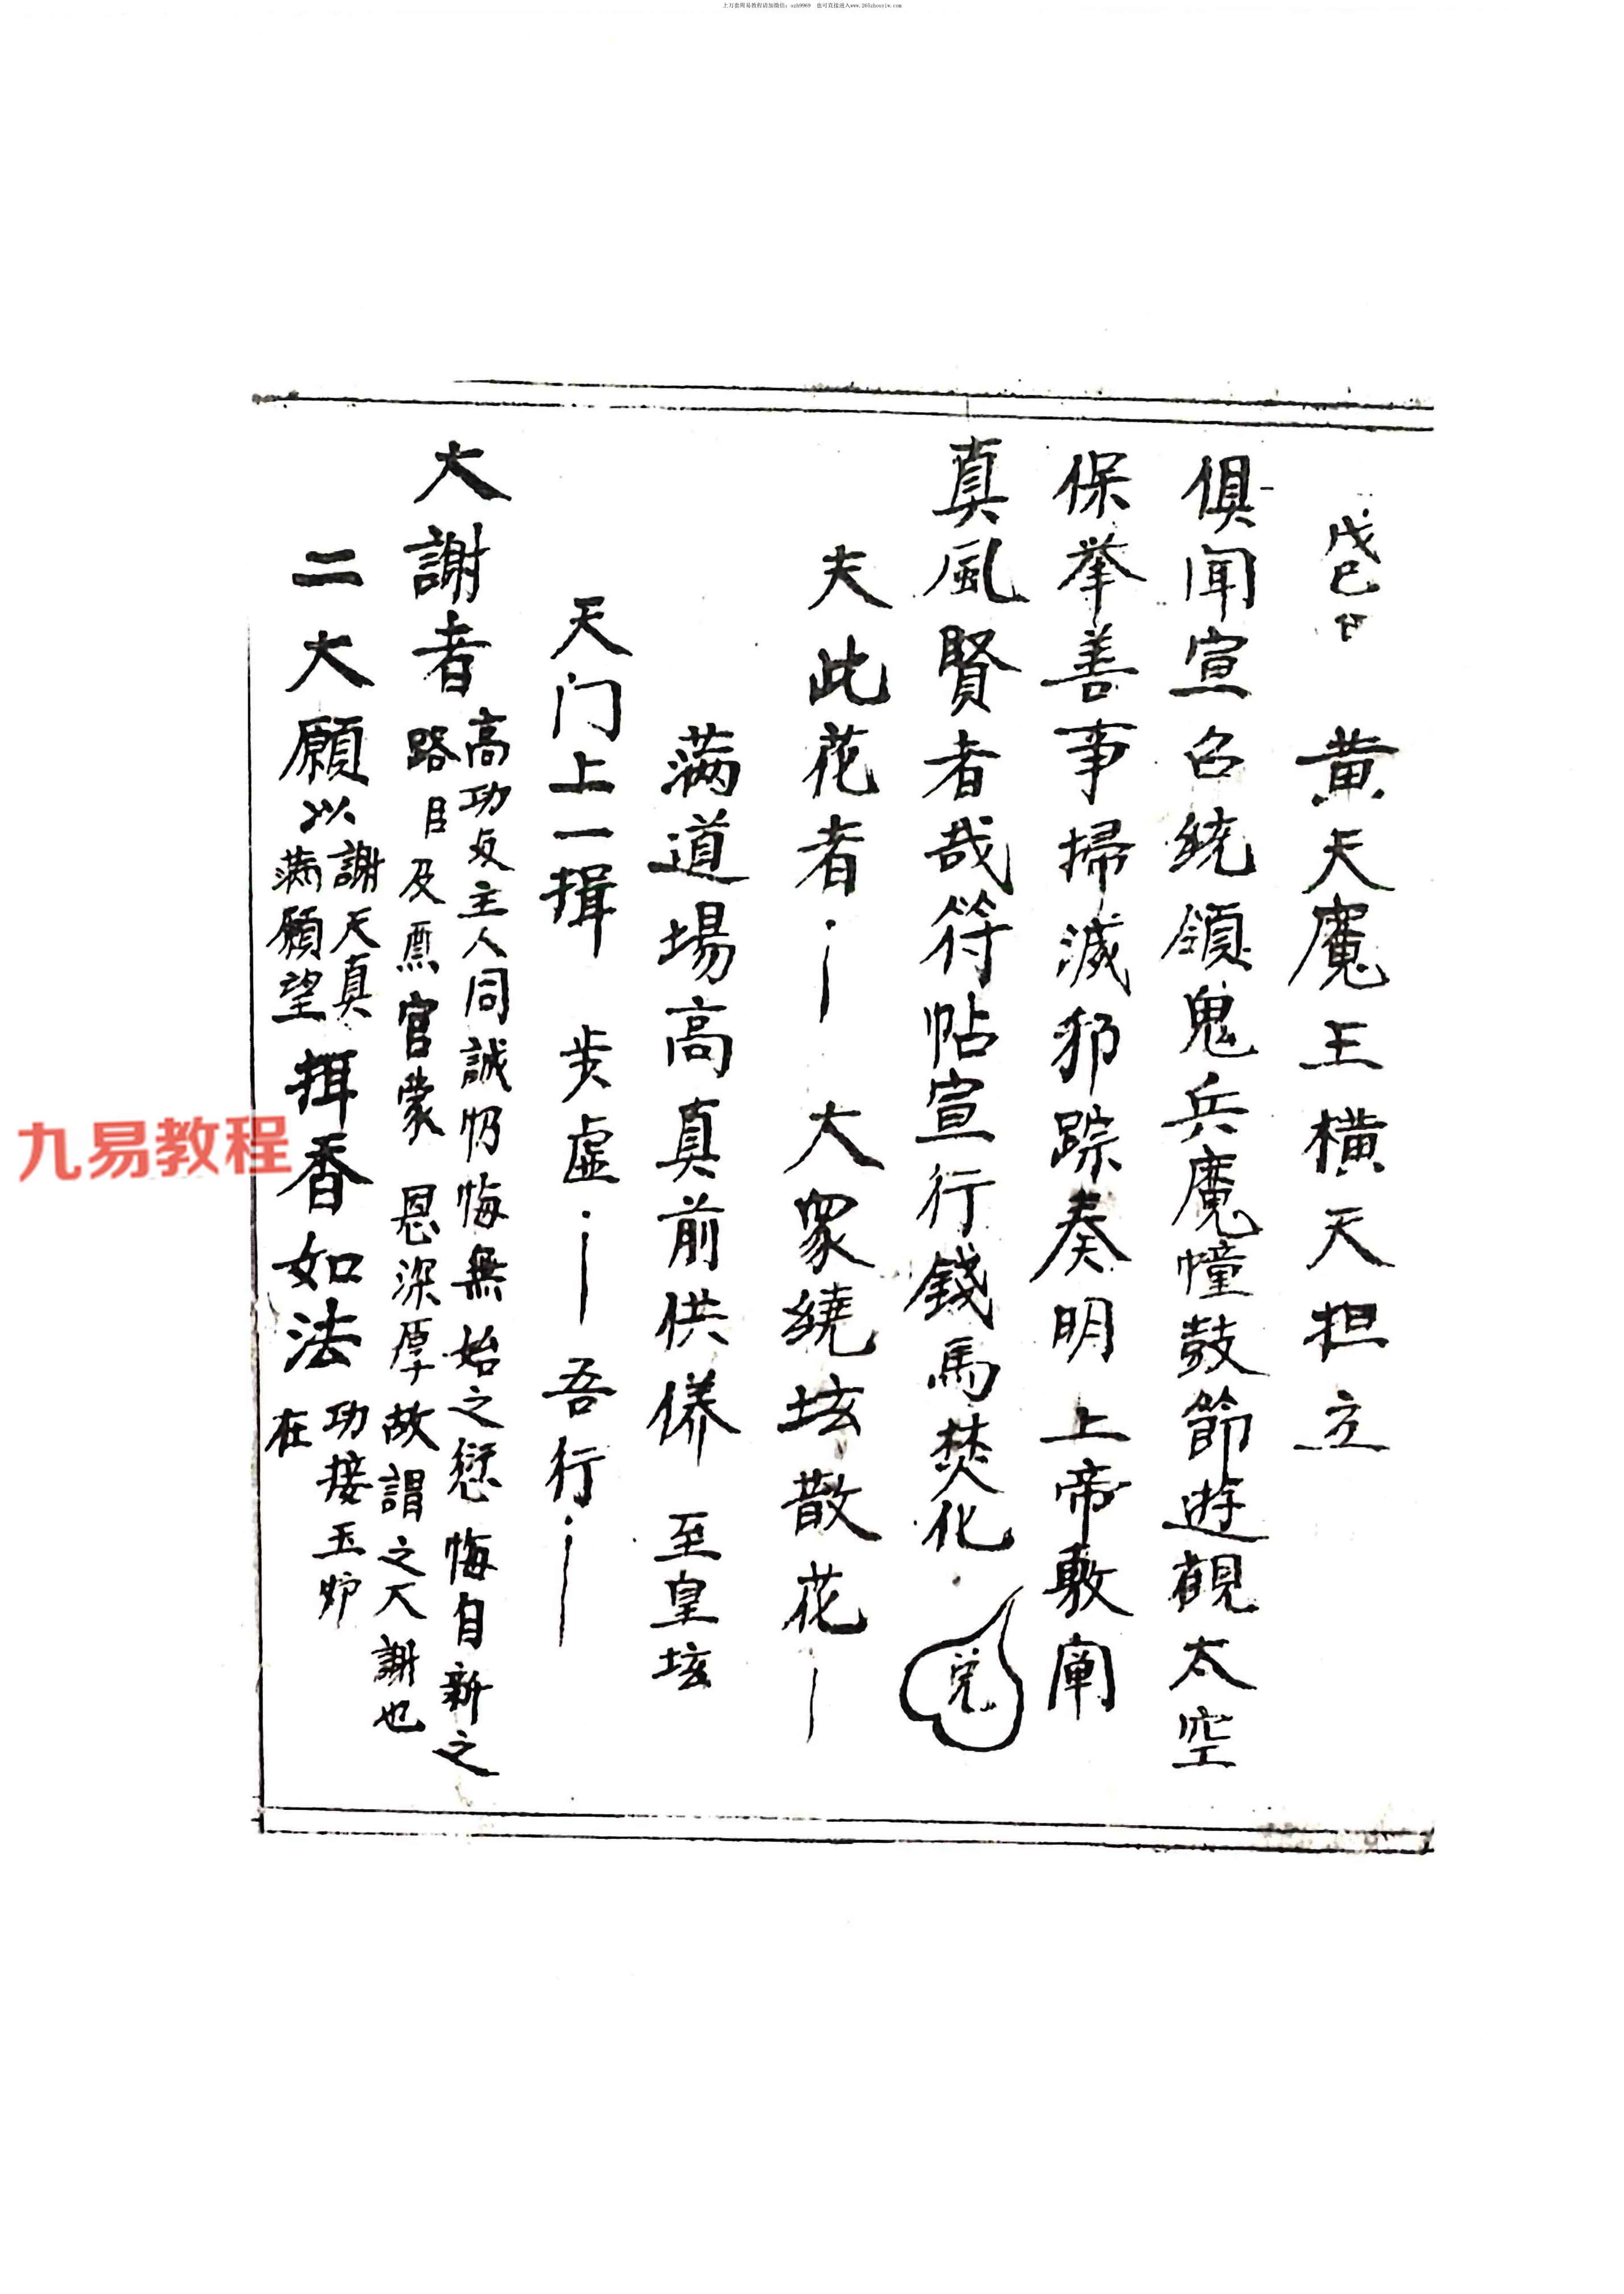 上万套周易教程请加微信：szh9969　也可直接进入www.265zhouyiw.com
戊己日　黄天魔王横天担立
俱闻宣召統領鬼兵魔幢鼓節遊觀太空
保举善事掃滅邪踪奏明上帝敷阐
真風賢者哉符帖宣行錢馬焚化　完
夫此花者　大眾繞坛散花
满道場高真前供养　至皇坛
天门上一揖　步虚　吾行
大謝者
高功及主人同誠 悔無始之愆悔自新之
路 及 官蒙恩深厚故謂之大謝也
二大願以
謝天真
满願望
拜香如法
功接玉
在
九易教程